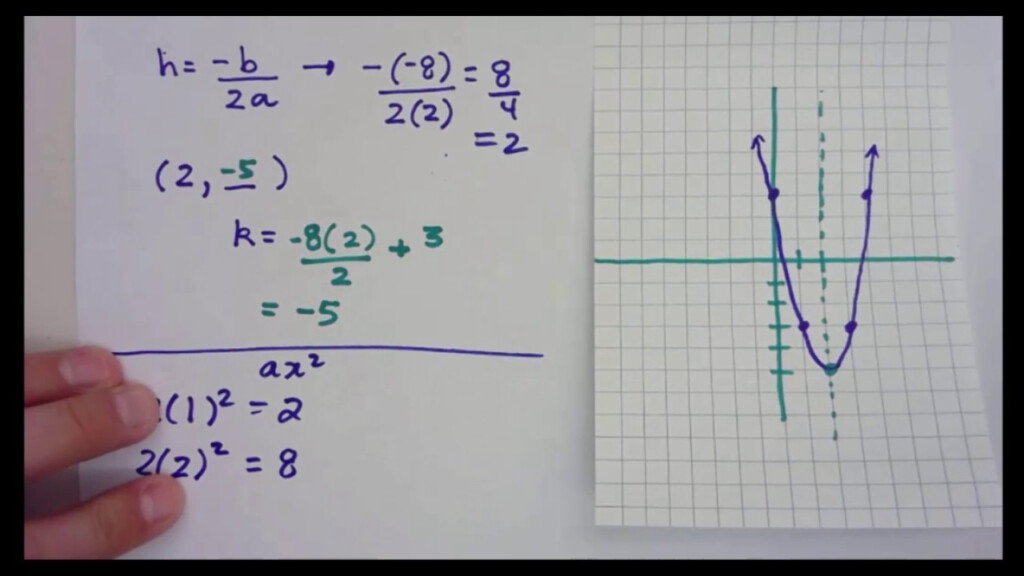 h = -b/2a → -(-8)/2(2) = 8/4
= 2
(2, -5)
k = -8(2)/2 + 3
= -5
ax²
(1)² = 2
2(2)² = 8